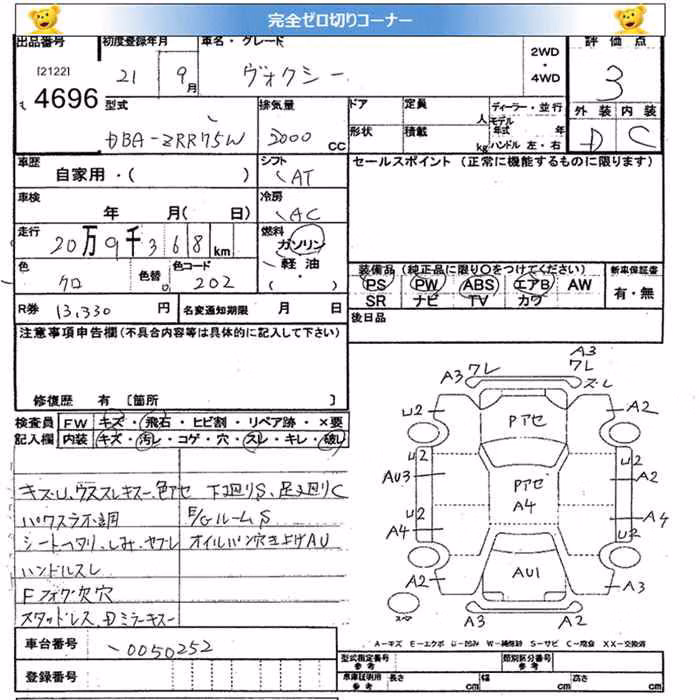 完全ゼロ切りコーナー
出品番号 初度登録年月 車名・グレード 2WD・4WD 評価点
[2122] 4696 21 9月 ヴォクシー 3
型式 排気量 ドア 定員 人 ディーラー・並行 外装 内装
DBA-ZRR75W 2000 CC 形状 積載 kg モデル年式 年 ハンドル 左・右 D C
車歴 自家用・( ) シフト AT セールスポイント (正常に機能するものに限ります)
車検 年 月( 日) 冷房 AC
走行 20万9千368km 燃料 ガソリン 軽油 ・( )
色 クロ 色替 色コード 202
装備品 (純正品に限り○をつけてください) 新車保証書
PS PW ABS エアB AW 有・無
SR ナビ TV カワ
R券 13,330円 名変通知期限 月 日 後日品
注意事項申告欄 (不具合内容等は具体的に記入して下さい)
修復歴 有 [箇所 ]
検査員 FW キズ・飛石・ヒビ割・リペア跡・×要
記入欄 内装 キズ・汚レ・コゲ・穴・スレ・キレ・破レ
キズ・U、ウススレキズー、色アセ 下廻りS、足廻りC
パワスラ不調 E/GルームS
シートヘタリ、しみ、ヤブレ オイルパン穴き上げAU
ハンドルスレ
Fフォグ欠穴
スタッドレス、Dミラーキズー
車台番号 0050252
登録番号
A3
A3 ワレ ワレ
ズレ
U2 Pアセ A2
U2 U2
AU3 Pアセ A2
A4
U2 A4
A4 U2
A2 AU1 A3
スペア
A3 A2
A-キズ E-エクボ U-凹み W-補修跡 S-サビ C-腐食 XX-交換済
型式指定番号 参考 類別区分番号 参考
車庫証明用 参考 長さ cm 幅 cm 高さ cm